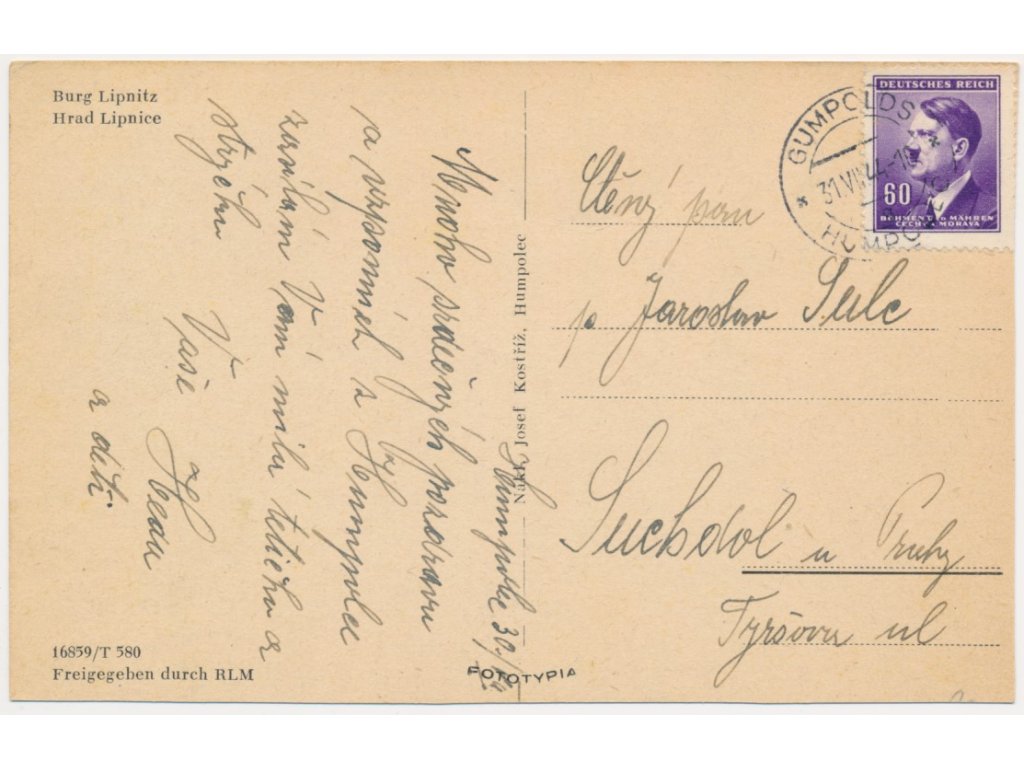 Burg Lipnitz
Hrad Lipnice
Humpolec 30./
Mnoho srdečných pozdravů
a vzpomínek z Humpolce
zasílám Vám milá tetičko a
strýčku Vaše
a děti.
16859/T 580
Freigegeben durch RLM
Nakl. Josef Kostříž, Humpolec
FOTOTYPIA
GUMPOLDS
31.VII.44-10
HUMPO
DEUTSCHES REICH
60
BÖHMEN U. MÄHREN
ČECHY A MORAVA
Ctěný pan
p Jaroslav Šulc
Suchdol u Prahy
Tyršova ul